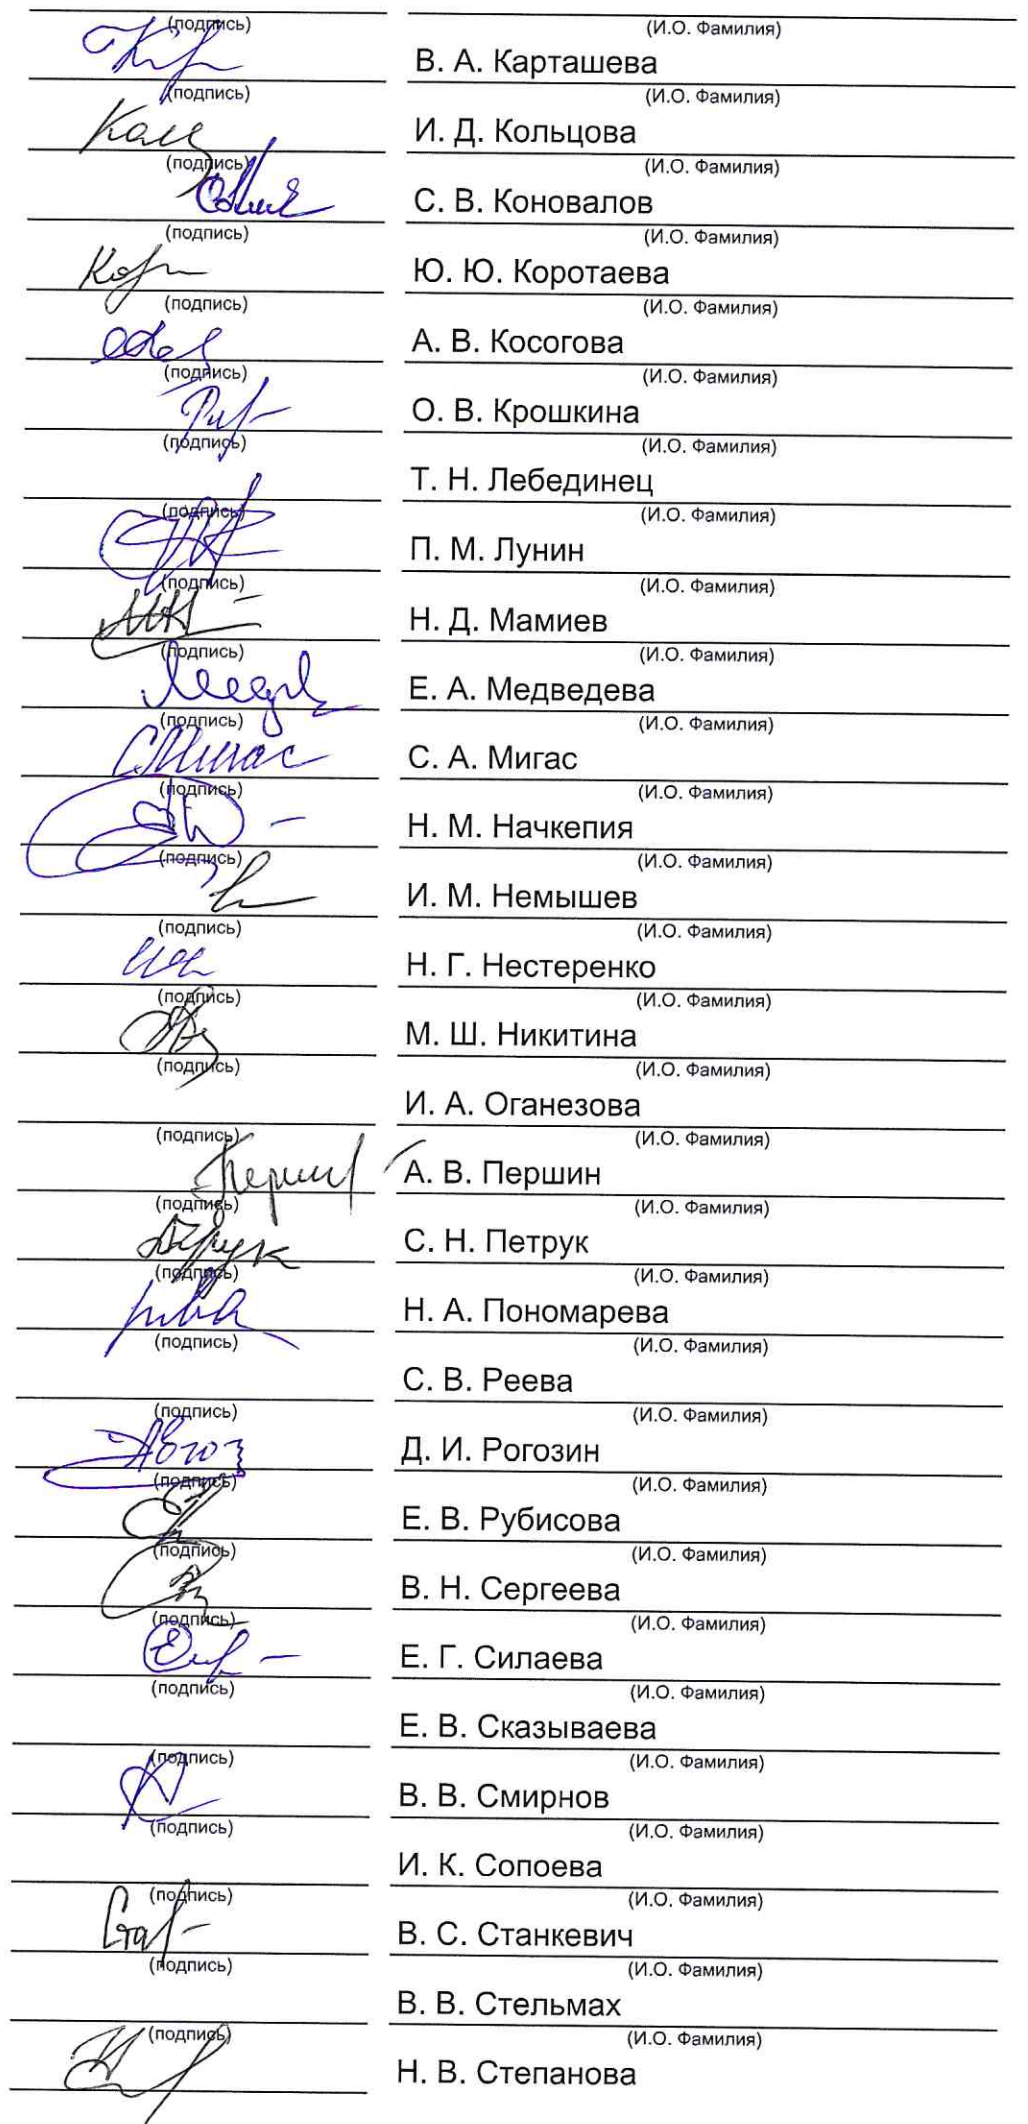 (подпись) (И.О. Фамилия)
В. А. Карташева
(подпись) (И.О. Фамилия)
И. Д. Кольцова
(подпись) (И.О. Фамилия)
С. В. Коновалов
(подпись) (И.О. Фамилия)
Ю. Ю. Коротаева
(подпись) (И.О. Фамилия)
А. В. Косогова
(подпись) (И.О. Фамилия)
О. В. Крошкина
(подпись) (И.О. Фамилия)
Т. Н. Лебединец
(подпись) (И.О. Фамилия)
П. М. Лунин
(подпись) (И.О. Фамилия)
Н. Д. Мамиев
(подпись) (И.О. Фамилия)
Е. А. Медведева
(подпись) (И.О. Фамилия)
СМигас С. А. Мигас
(подпись) (И.О. Фамилия)
Н. М. Начкепия
(подпись) (И.О. Фамилия)
И. М. Немышев
(подпись) (И.О. Фамилия)
Н. Г. Нестеренко
(подпись) (И.О. Фамилия)
М. Ш. Никитина
(подпись) (И.О. Фамилия)
И. А. Оганезова
(подпись) (И.О. Фамилия)
А. В. Першин
(подпись) (И.О. Фамилия)
С. Н. Петрук
(подпись) (И.О. Фамилия)
Н. А. Пономарева
(подпись) (И.О. Фамилия)
С. В. Реева
(подпись) (И.О. Фамилия)
Д. И. Рогозин
(подпись) (И.О. Фамилия)
Е. В. Рубисова
(подпись) (И.О. Фамилия)
В. Н. Сергеева
(подпись) (И.О. Фамилия)
Е. Г. Силаева
(подпись) (И.О. Фамилия)
Е. В. Сказываева
(подпись) (И.О. Фамилия)
В. В. Смирнов
(подпись) (И.О. Фамилия)
И. К. Сопоева
(подпись) (И.О. Фамилия)
В. С. Станкевич
(подпись) (И.О. Фамилия)
В. В. Стельмах
(подпись) (И.О. Фамилия)
Н. В. Степанова